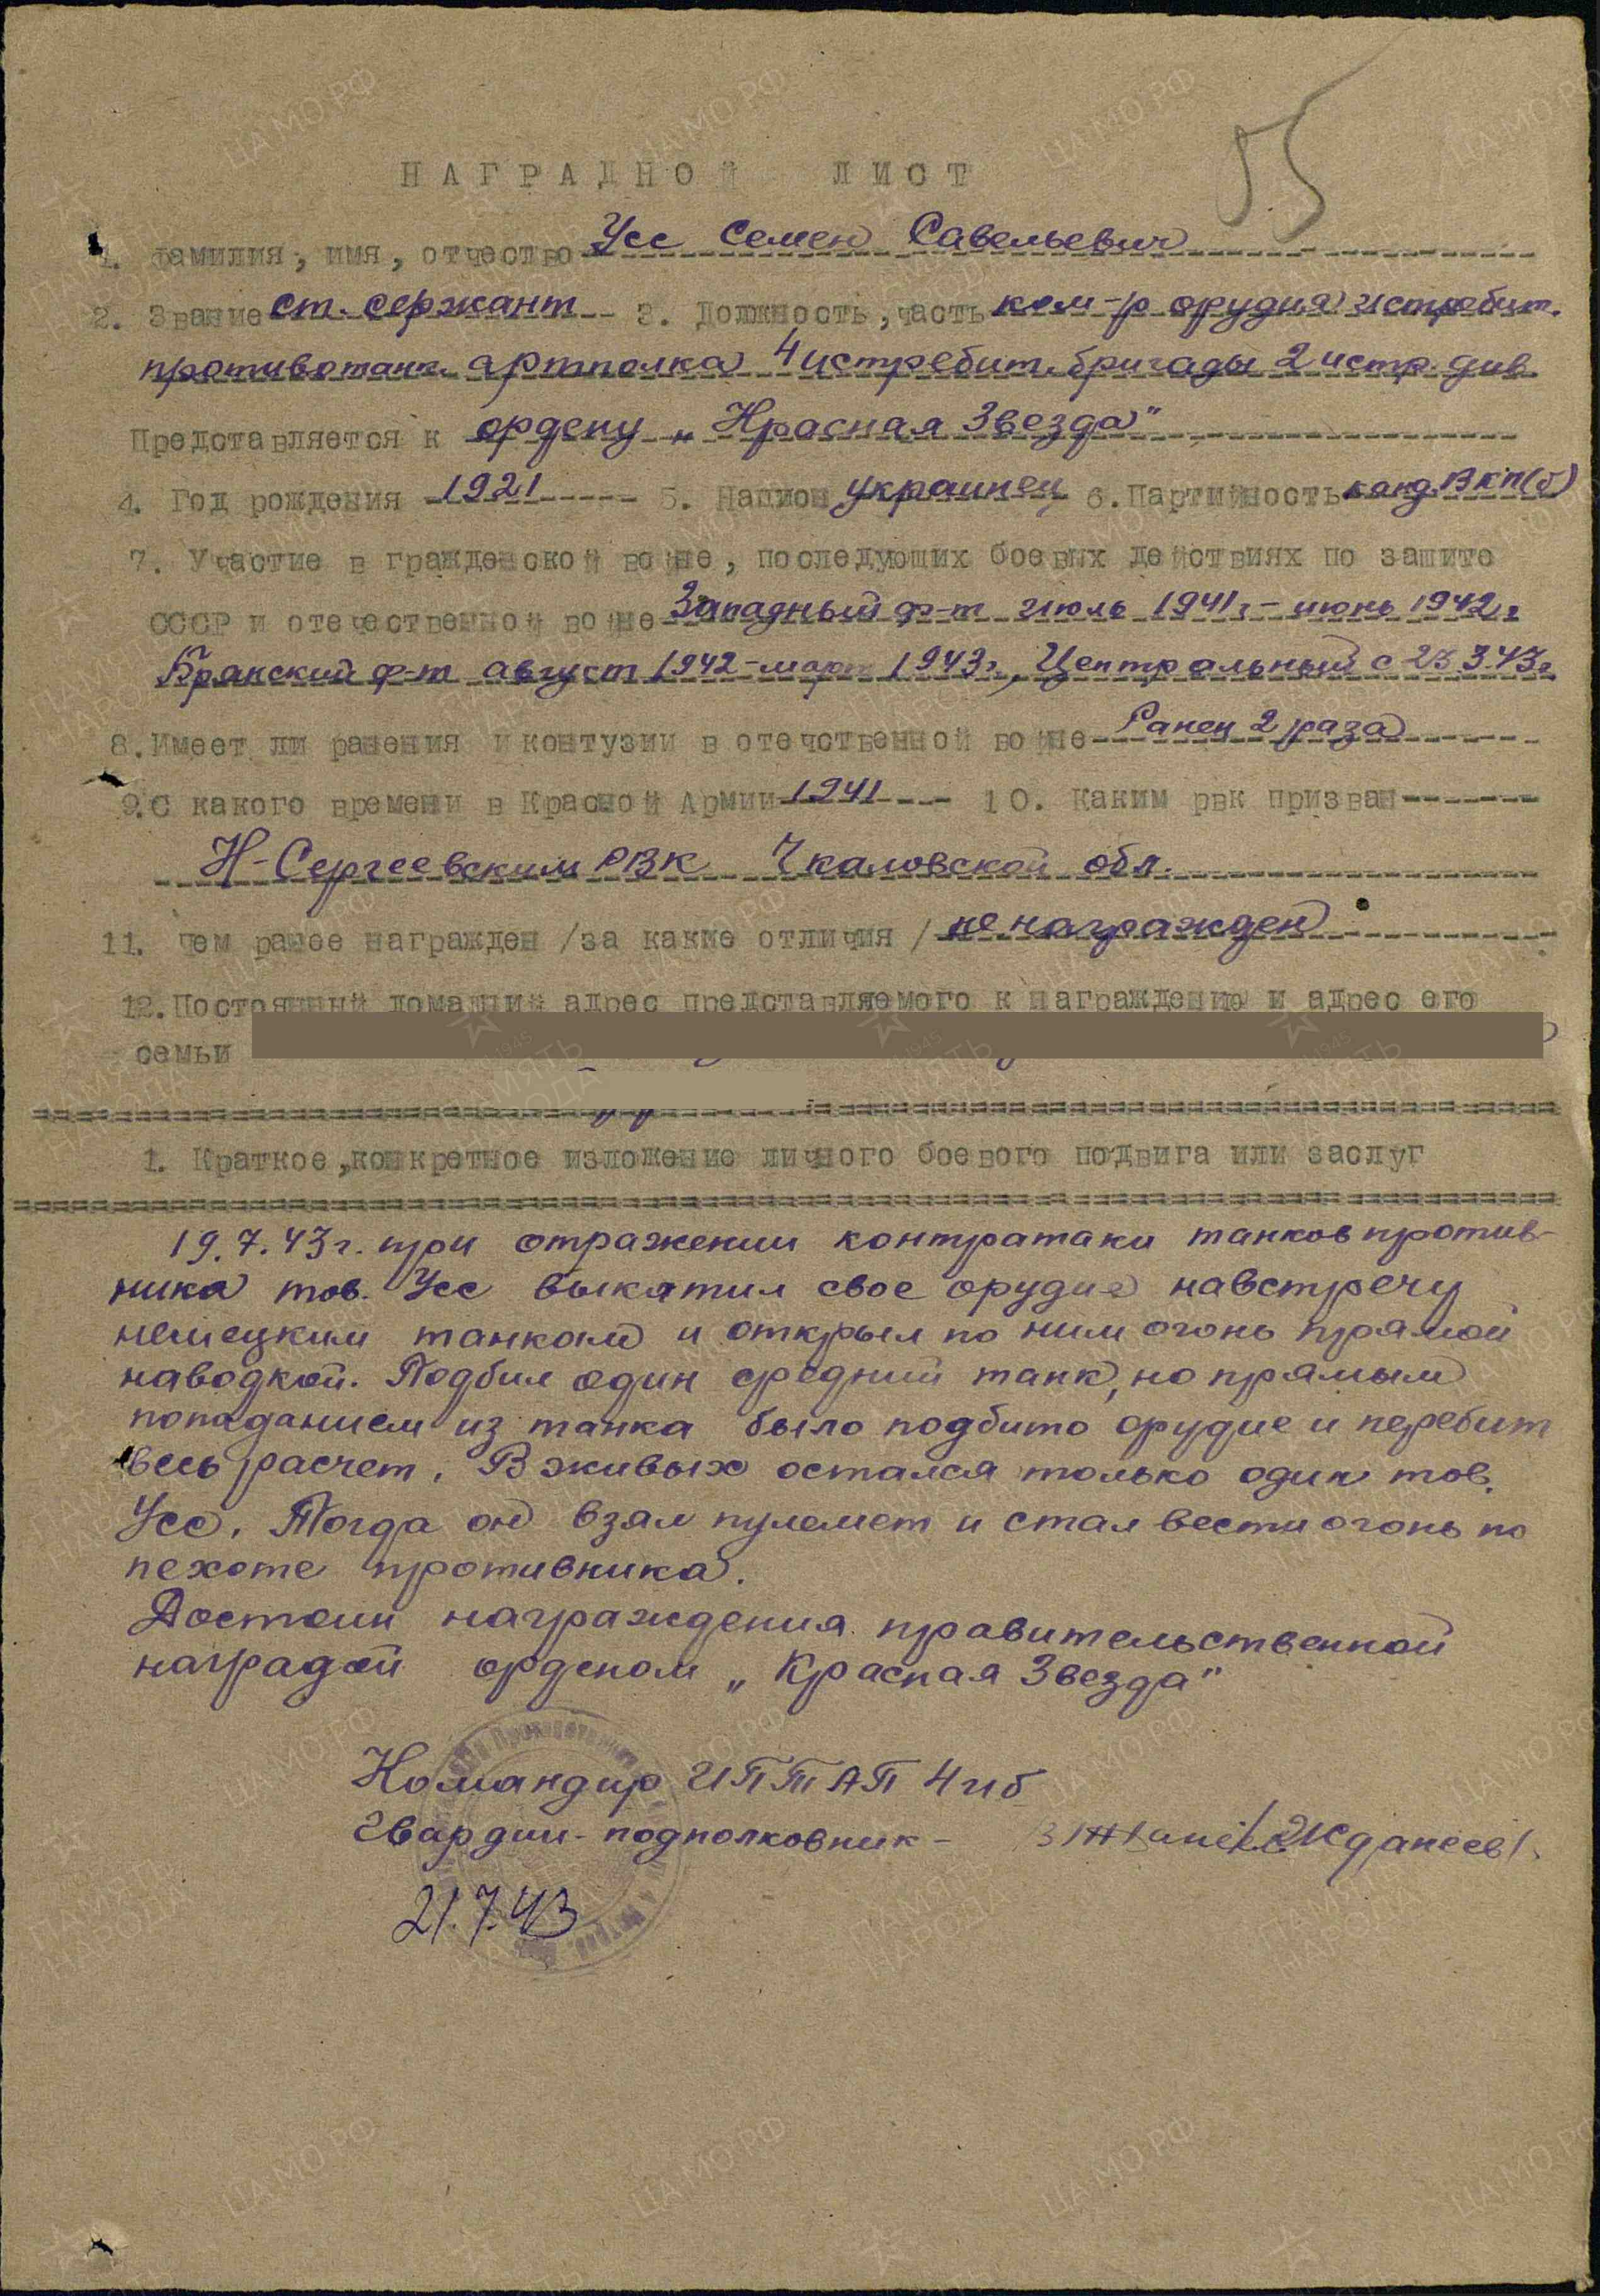 55
НАГРАДНОЙ ЛИСТ
1. Фамилия, имя, отчество Усс Семен Савельевич
2. Звание ст. сержант 3. Должность, часть ком-р орудия истребит.
противотанк. артполка 4 истребит. бригады 2 истр. див.
Представляется к ордену „Красная Звезда"
4. Год рождения 1921 5. Национ украинец 6. Партийность канд. ВКП(б)
7. Участие в гражденской войне, последующих боевых действиях по защите
СССР и отечественной войне Западный ф-т июль 1941г - июнь 1942г
Брянский ф-т август 1942 - март 1943г, Центральный с 23.3.43г.
8. Имеет ли ранения и контузии в отечственной войне Ранен 2 раза
9. С какого времени в Красной Армии 1941 10. Каким рвк призван
Н-Сергеевским РВК Чкаловской обл.
11. чем ранее награжден /за какие отличия/ не награжден
12. Постоянный домашний адрес представляемого к награждению и адрес его
семьи
1. Краткое, конкретное изложение личного боевого подвига или заслуг
19.7.43г. при отражении контратаки танков против-
ника тов. Усс выкатил свое орудие навстречу
немецким танкам и открыл по ним огонь прямой
наводкой. Подбил один средний танк, но прямым
попаданием из танка было подбито орудие и перебит
весь расчет. В живых остался только один тов.
Усс. Тогда он взял пулемет и стал вести огонь по
пехоте противника.
Достоин награждения правительственной
наградой орденом „Красная Звезда"
Командир ИПТАП 4 иб
Гвардии-подполковник - /Жданеев/.
21.7.43